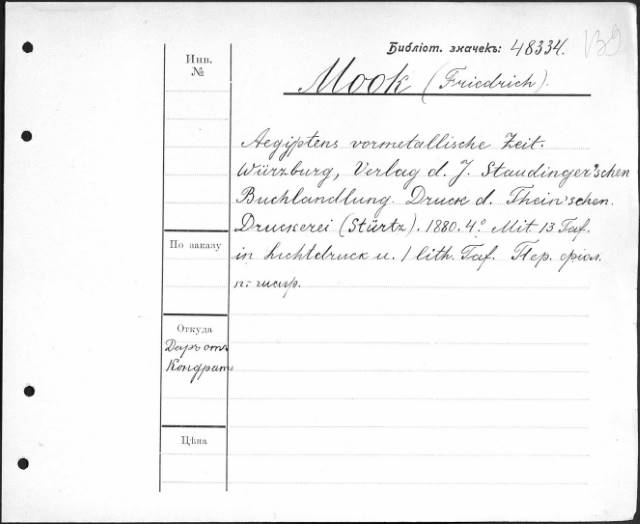 Библіот. значекъ: 48334. 139
Инв. №
Mook (Friedrich).
Aegyptens vormetallische Zeit.
Würzburg, Verlag d. J. Staudinger'schen
Buchlandlung. Druck d. Thein'schen.
Druckerei (Stürtz). 1880. 4° Mit 13 Taf.
in Lichtdruck u. 1 lith. Taf. Пер.
По заказу
Откуда
Даръ отъ
Кондрат
Цѣна